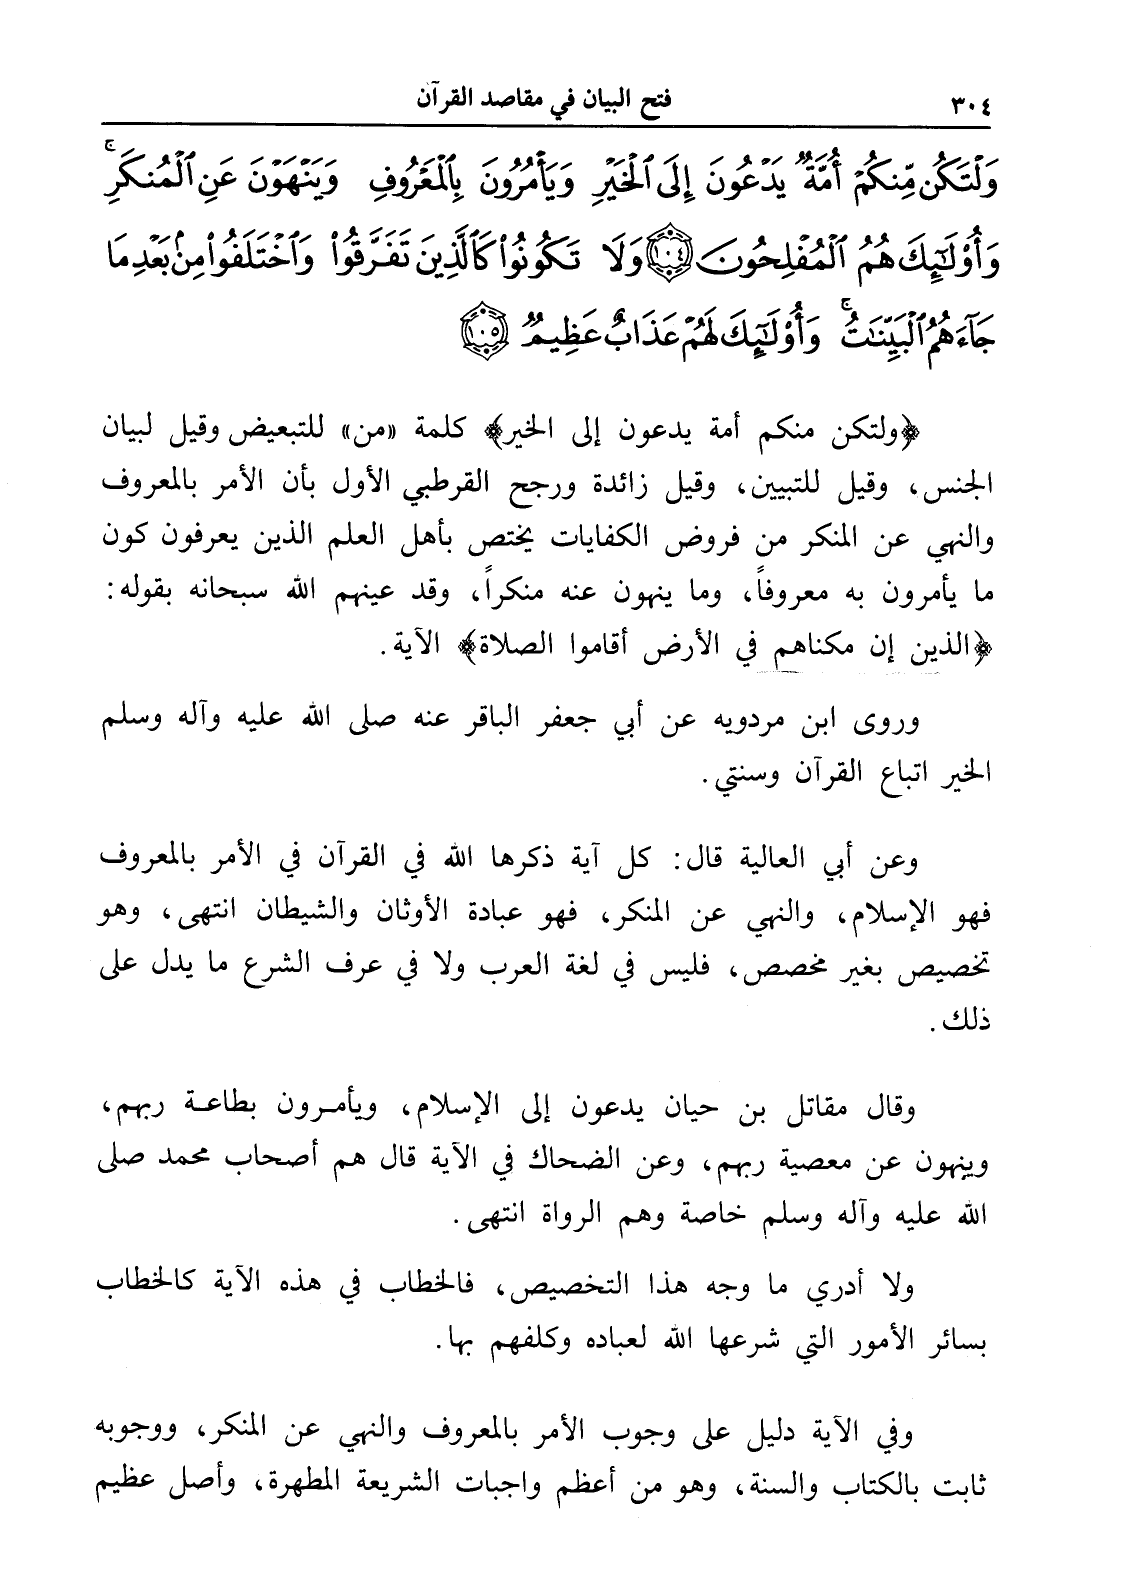 ٣٠٤ فتح البيان في مقاصد القرآن
وَلْتَكُن مِّنكُمْ أُمَّةٌ يَدْعُونَ إِلَى ٱلْخَيْرِ وَيَأْمُرُونَ بِٱلْمَعْرُوفِ وَيَنْهَوْنَ عَنِ ٱلْمُنكَرِ ۚ
وَأُوْلَٰٓئِكَ هُمُ ٱلْمُفْلِحُونَ ١٠٤ وَلَا تَكُونُوا۟ كَٱلَّذِينَ تَفَرَّقُوا۟ وَٱخْتَلَفُوا۟ مِنۢ بَعْدِ مَا
جَآءَهُمُ ٱلْبَيِّنَٰتُ ۚ وَأُوْلَٰٓئِكَ لَهُمْ عَذَابٌ عَظِيمٌ ١٠٥
﴿ولتكن منكم أمة يدعون إلى الخير﴾ كلمة «من» للتبعيض وقيل لبيان
الجنس، وقيل للتبيين، وقيل زائدة ورجح القرطبي الأول بأن الأمر بالمعروف
والنهي عن المنكر من فروض الكفايات يختص بأهل العلم الذين يعرفون كون
ما يأمرون به معروفاً، وما ينهون عنه منكراً، وقد عينهم الله سبحانه بقوله:
﴿الذين إن مكناهم في الأرض أقاموا الصلاة﴾ الآية.
وروى ابن مردويه عن أبي جعفر الباقر عنه صلى الله عليه وآله وسلم
الخير اتباع القرآن وسنتي.
وعن أبي العالية قال: كل آية ذكرها الله في القرآن في الأمر بالمعروف
فهو الإسلام، والنهي عن المنكر، فهو عبادة الأوثان والشيطان انتهى، وهو
تخصيص بغير مخصص، فليس في لغة العرب ولا في عرف الشرع ما يدل على
ذلك.
وقال مقاتل بن حيان يدعون إلى الإسلام، ويأمرون بطاعة ربهم،
وينهون عن معصية ربهم، وعن الضحاك في الآية قال هم أصحاب محمد صلى
الله عليه وآله وسلم خاصة وهم الرواة انتهى.
ولا أدري ما وجه هذا التخصيص، فالخطاب في هذه الآية كالخطاب
بسائر الأمور التي شرعها الله لعباده وكلفهم بها.
وفي الآية دليل على وجوب الأمر بالمعروف والنهي عن المنكر، ووجوبه
ثابت بالكتاب والسنة، وهو من أعظم واجبات الشريعة المطهرة، وأصل عظيم